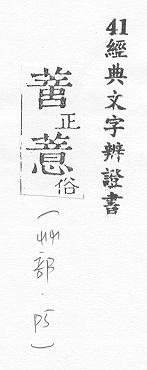 41 經典文字辨證書
正
薏俗
(艸部．P5)